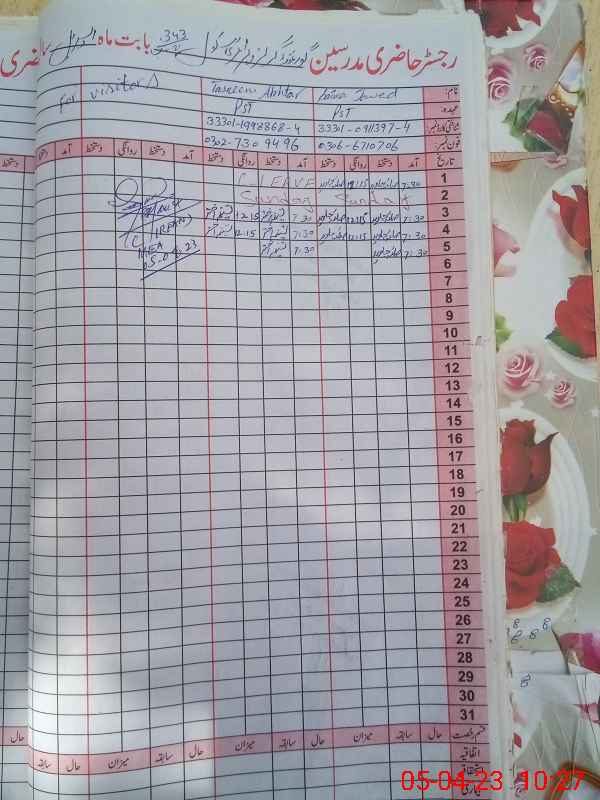 رجسٹر حاضری مدرسین گورنمنٹ گرلز پرائمری سکول 343 بابت ماہ اپریل
حاضری
نام: Faiza Javed Tasneem Akhtar For visitors
عہدہ: PST PST
شناختی کارڈ نمبر 33301-0911397-4 33301-1998868-4
فون نمبر: 0306-6710706 0302-7309496
تاریخ آمد دستخط روانگی دستخط آمد دستخط روانگی دستخط آمد دستخط روانگی دستخط آمد دستخط
1 7:30 12:15 C. LEAVE
2 Sunday Sunday
3 7:30 12:15 7:30 12:15
4 7:30 12:15 7:30 12:15
5 7:30 7:30
(IRFAN)
MEA
05.04.23
6
7
8
9
10
11
12
13
14
15
16
17
18
19
20
21
22
23
24
25
26
27
28
29
30
31
قسم رخصت حال سابقہ میزان حال سابقہ میزان حال سابقہ میزان حال
اتفاقیہ
استحقاقیہ
بیماری
05-04-23 10:27